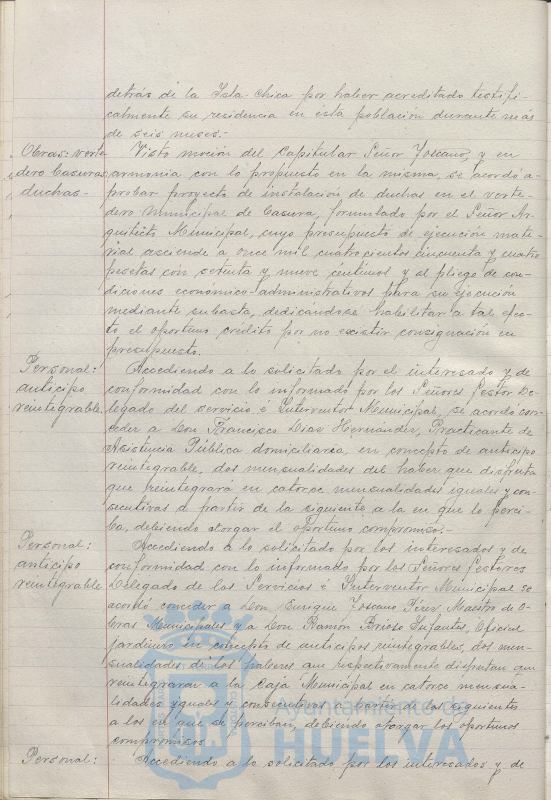 detrás de la Isla-Chica por haber acreditado testifi-
calmente su residencia en esta población durante más
de seis meses.-
Obras: verte
dero Casuras
duchas.-
Visto moción del Capitular Señor Toscano, y en
armonia con lo propuesto en la misma, se acordó a-
probar proyecto de instalación de duchas en el verte-
dero Municipal de Basura, formulado por el Señor Ar-
quitecto Municipal, cuyo presupuesto de ejecución mate-
rial asciende a once mil cuatrocientos cincuenta y cuatro
pesetas con setenta y nueve céntimos y al pliego de con-
diciones económico-administrativas para su ejecución
mediante subasta, dedicándose habilitar a tal efec-
to el oportuno crédito por no existir consignación en
presupuesto.
Personal:
anticipo
reintegrable
Accediendo a lo solicitado por el interesado y de
conformidad con lo informado por los Señores Gestor De-
legado del servicio é Interventor Municipal, se acordo con-
ceder a Don Francisco Dias Hernández, Practicante de
Asistencia Pública domiciliaria, en concepto de anticipo
reintegrable, dos mensualidades del haber que disfruta
que reintegrará en catorce mensualidades iguales y con-
secutivas a partir de la siguiente a la en que lo perci-
ba, debiendo otorgar el oportuno compromiso.-
Personal:
anticipo
reintegrable
Accediendo a lo solicitado por los interesados y de
conformidad con lo informado por los Señores Gestores
Delegado de los Servicios é Interventor Municipal se
acordó conceder a Don Enrique Toscano Pérez Maestro de O-
bras Municipales y a Don Ramón Brioso Infantes, Oficial
jardinero en concepto de anticipos reintegrables, dos men-
sualidades de los haberes que respectivamente disfrutan que
reintegraran a la Caja Municipal en catorce mensua-
lidades yguales y consecutivas a partir de las siguientes
a los en que se perciban, debiendo otorgar los oportunos
compromisos.
Personal:
Accediendo a lo solicitado por los interesados y de
Ayuntamiento de
HUELVA